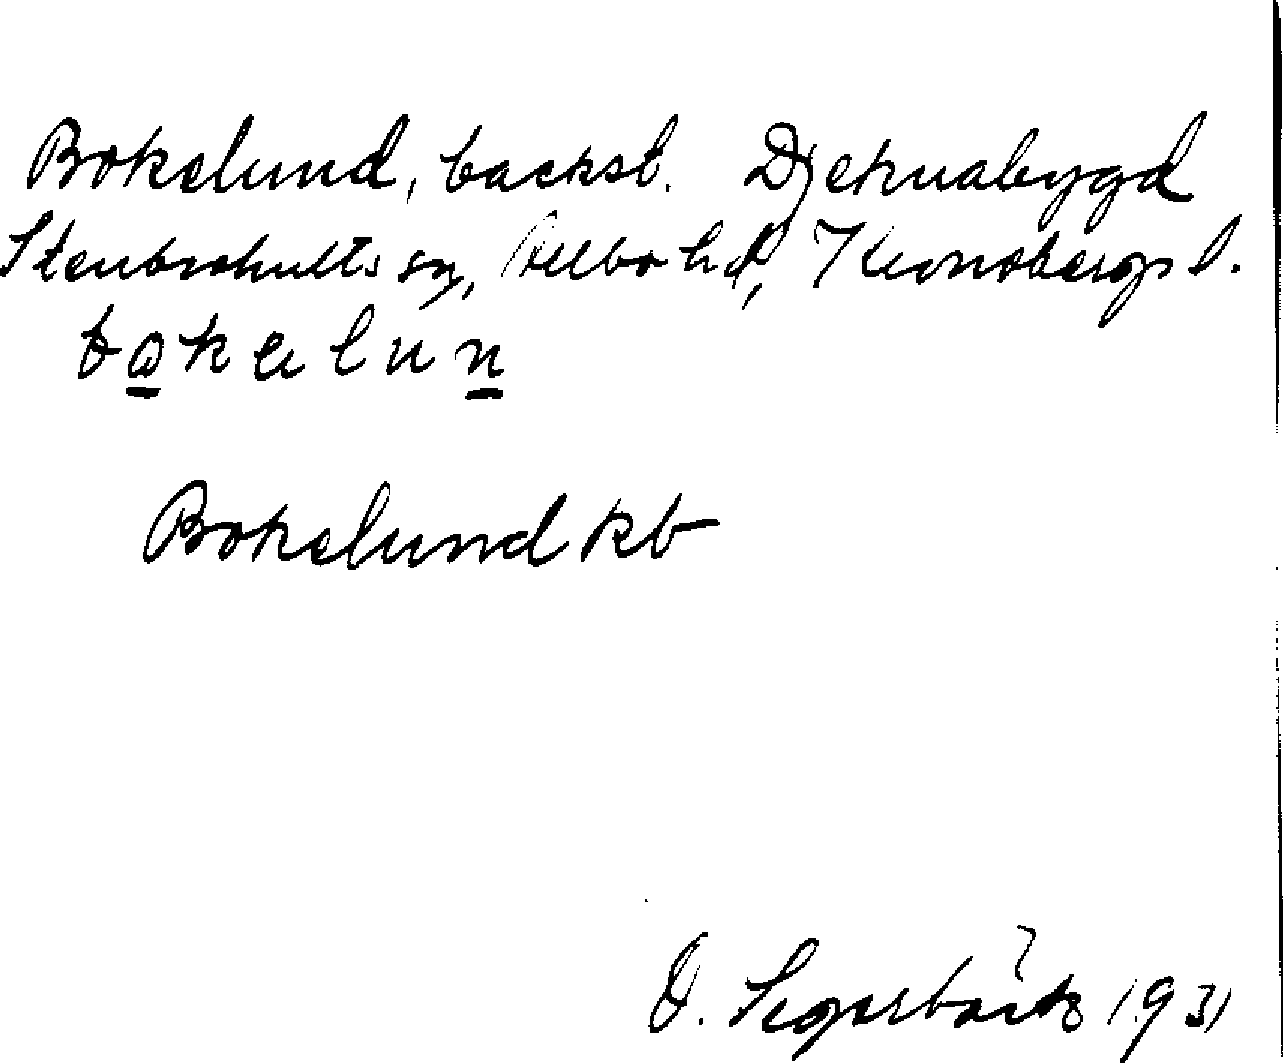 Bokelund, backst. Djeknabygd
Stenbrohults sn, Allbo hd, Kronobergs l.
bokelun
Bokelund kb
O. 1931